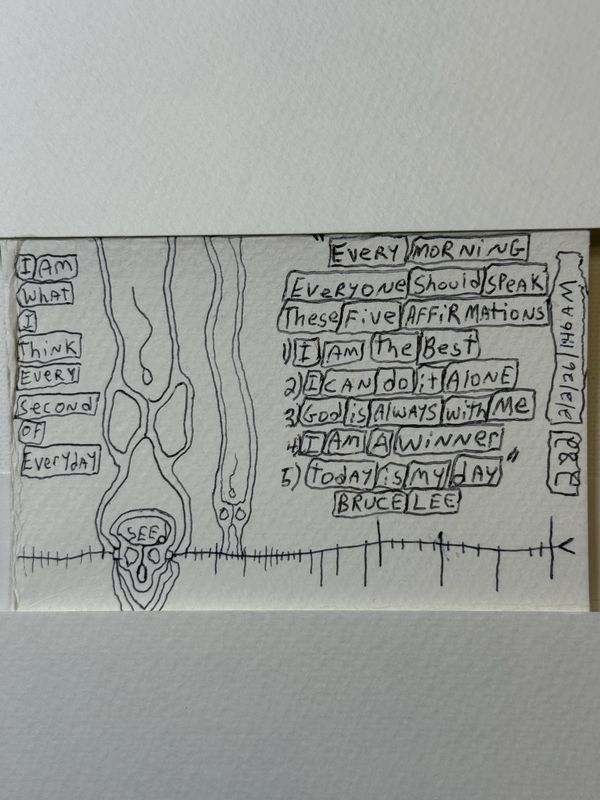 I AM
WHAT
I
Think
EVERY
Second
OF
EverydAy
SEE
"EVERY MORNiNG
EVERYONE Should SPEAK
These FivE AFFiRMATiONS
1) I AM The Best
2) I CAN do it AlONE
3) God is AlWAYS With ME
4) I AM A WiNNER
5) TodAY is MY dAY"
BRUCE LEE